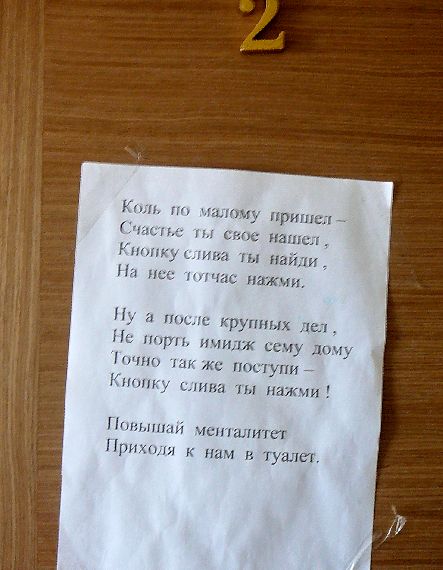 2
Коль по малому пришел –
Счастье ты свое нашел ,
Кнопку слива ты найди ,
На нее тотчас нажми.
Ну а после крупных дел ,
Не порть имидж сему дому
Точно так же поступи –
Кнопку слива ты нажми !
Повышай менталитет
Приходя к нам в туалет.